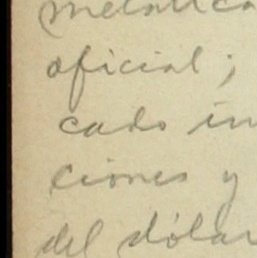 metálica
oficial;
cado in
ciones y
del dólar